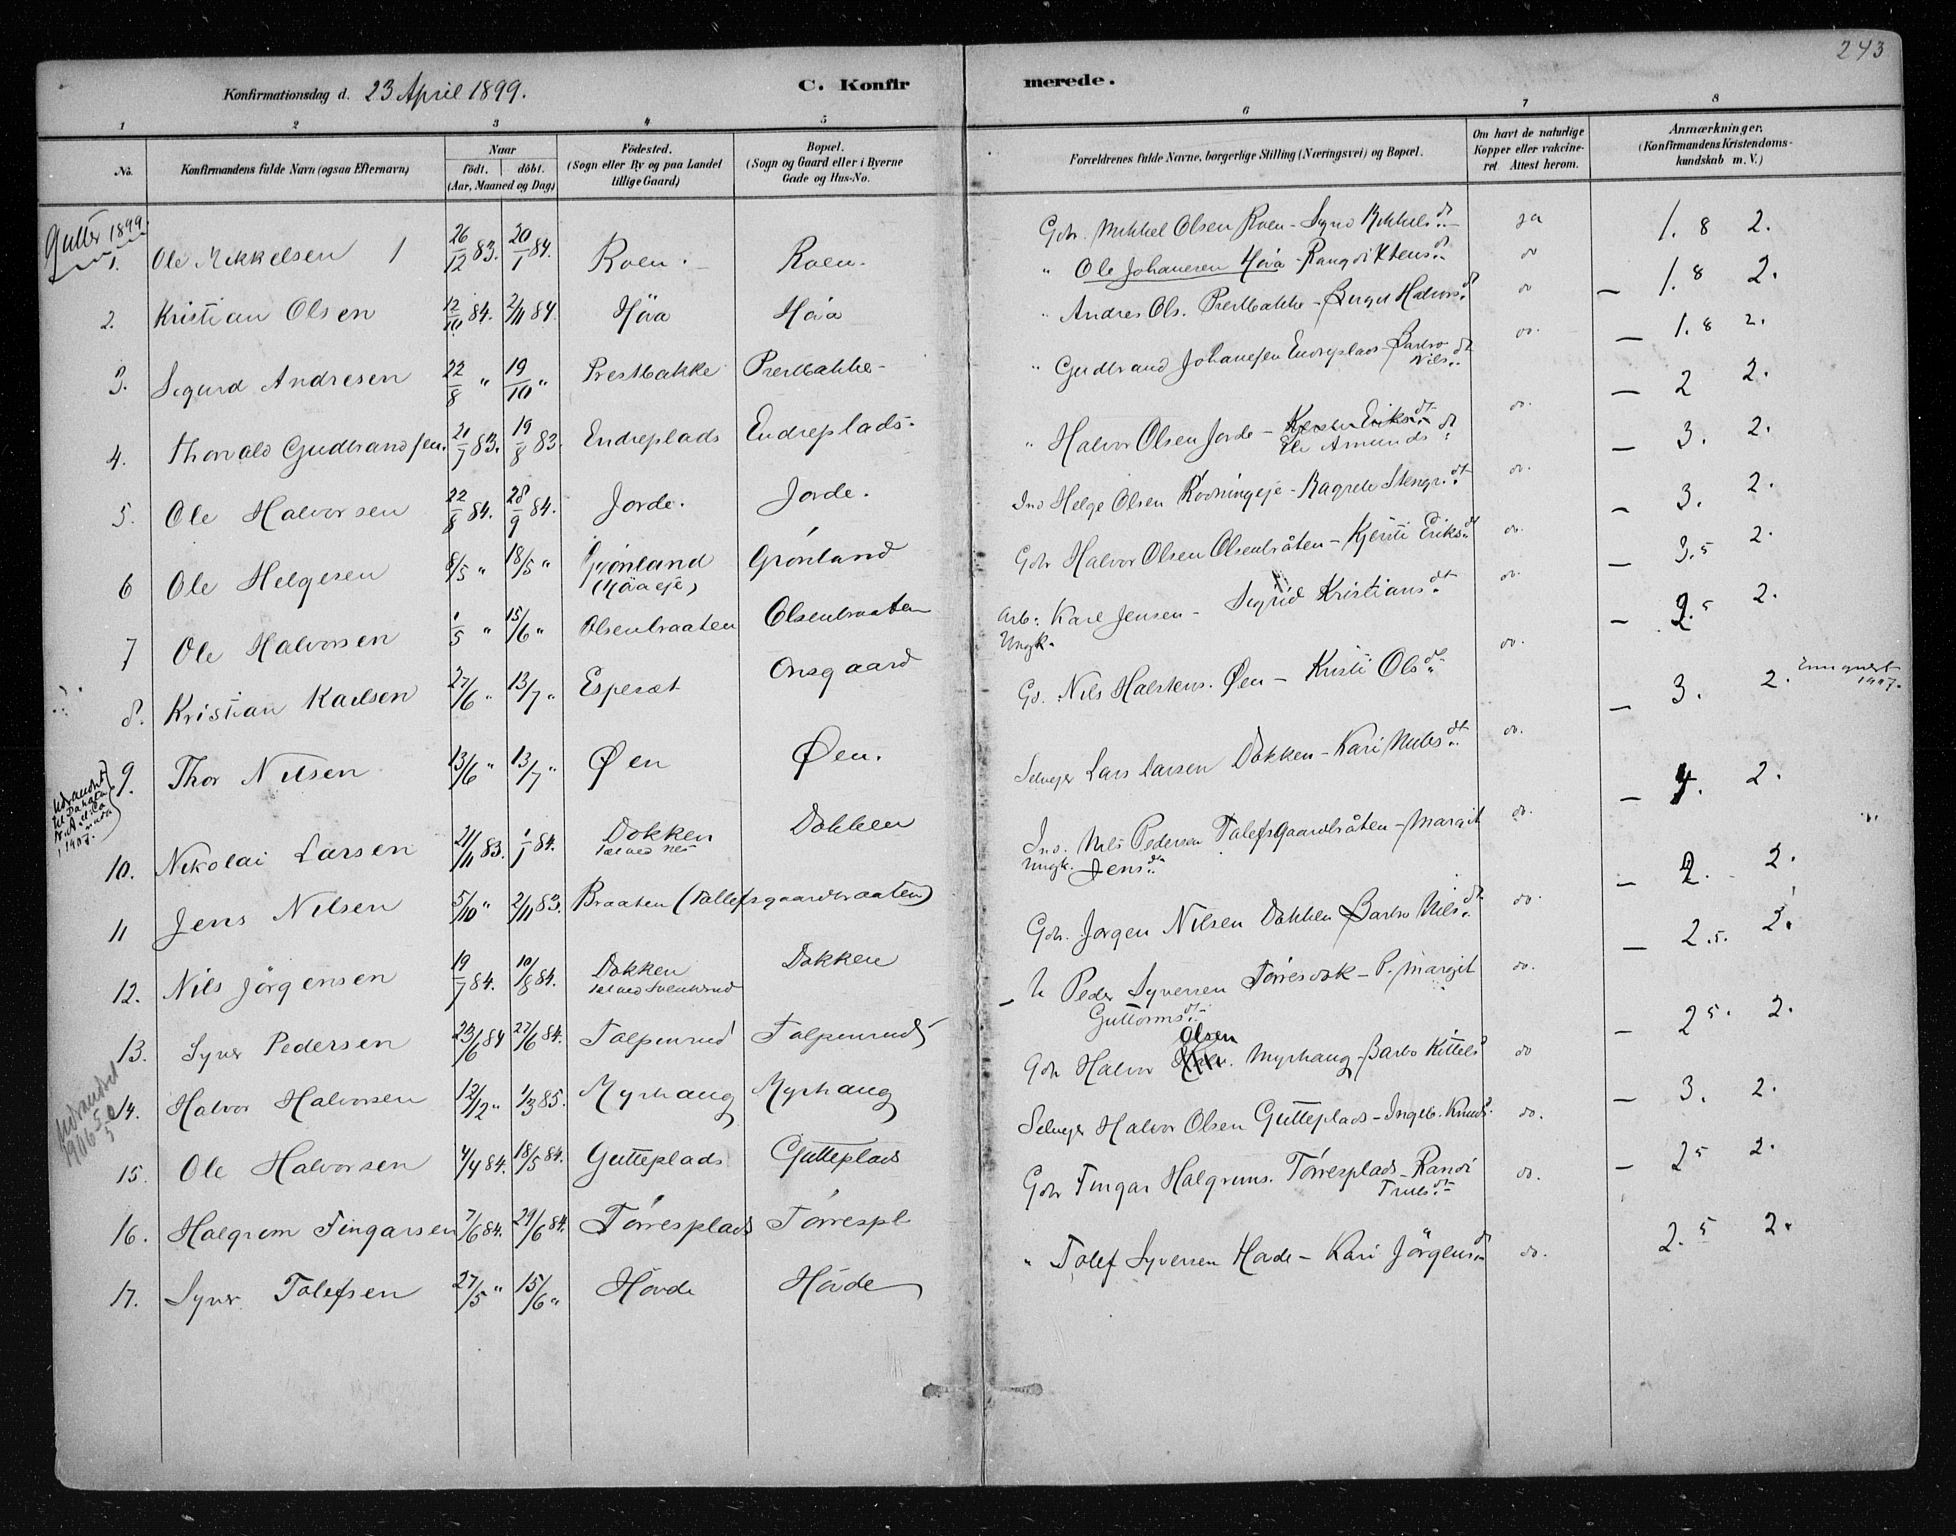 243
Konfirmationsdag d. 23 April 1899.
C. Konfirmerede.
1 2 3 4 5 6 7 8
No.
Konfirmandens fulde Navn (ogsaa Efternavn)
Naar
födt. döbt.
(Aar, Maaned og Dag)
Födested.
(Sogn eller By og paa Landet
tillige Gaard)
Bopæl.
(Sogn og Gaard eller i Byerne
Gade og Hus-No.
Forældrenes fulde Navne, borgerlige Stilling (Næringsvei) og Bopæl.
Om havt de naturlige
Kopper eller vakcine-
ret Attest herom.
Anmærkninger.
(Konfirmandens Kristendoms-
kundskab m. V.)
Gutter 1899.
1. Ole Mekkelsen 1 26/12 83. 20/1 84. Roen. Roen. Gbr. Mikkel Olsen Roen - ja 1.8 2.
2. Kristian Olsen 12/10 84. 2/11 84. Höva Höva " Ole Johannesen Höva - do 1.8 2.
3. Sigurd Andresen 22/8 " 19/10 " Prestbakke Prestbakke - " Andres Ols. Prestbakke - Birgit Halvorsdt do 1.8 2.
4. Thorvald Gudbrandsen. 21/7 83. 19/8 83. Endreplads Endreplads. " Gudbrand Johannesen Endreplads - Barbro
Nilsdt do. 2 2.
5. Ole Halvorsen 22/8 84. 28/9 84. Jorde. Jorde. " Halvor Olsen Jorde - Kjersti Eriksdt
Amundsdt do. 3. 2.
6 Ole Helgesen 8/5 " 18/5 " Grönland
(Hövaeje)
Grönland Ind Helge Olsen do. 3. 2.
7 Ole Halvorsen 1/5 " 15/6 " Olsenbraaten Olsenbraaten Gbr Halvor Olsen Olsenbråten - Kjersti Eriksdt do. 3.5 2.
8. Kristian Karlsen 27/6 " 13/7 " Espeset Onsgaard Arb: Karl Jensen - Sigrid Kristiansdt
Ungk. do. 2.5 2.
9. Thor Nilsen 13/6 " 13/7 " Øen Øen. Gb. Nils Halstens. Øen - Kristi Olsdt do. 3. 2. Emigreret
1907.
Udvandret
til Dakota
N. Amerika
1907.
10. Nikolai Larsen 21/11 83. 1/1 84. Dokken Dokken Selvejer Lars Larsen Dokken - Kari Nilsdt do. 4. 2.
11 Jens Nilsen 5/10 " 2/11 83. Braaten (Tollefsgaardbraaten) Ind. Nils Pedersen Tolefsgaardbråten - Margit
Ungk. Jensdt do. 2. 2.
12. Nils Jörgensen 19/7 84. 10/8 84. Dokken Dokken Gbr. Jorgen Nilsen Dokken Barbro Nilsdt do. 2.5. 2.
13. Syver Pedersen 23/6 84 27/6 84. Tolpinrud Tolpinrud Peder Syversen - Margit
Guttormsdt do. 25. 2.
14. Halvor Halvorsen 12/12 " 1/3 85. Myrhaug Myrhaug Gbr Halvor Olsen Myrhaug - Barbro Kittelsd do 3. 2.
Udvandret
1906
15. Ole Halvorsen 4/4 84. 18/5 84. Gutteplads Gutteplads Selvejer Halvor Olsen Gutteplads - Ingeb. Knudsd. do. 25 2.
16. Halgrim Fingarsen 7/6 84. 29/6 84. Törresplads Törrespl Gbr Fingar Halgrims. Törresplads - Randi
Trulsdt do. 2.5 2.
17. Syver Tolefsen 27/5 " 15/6 " Hovde Hövde " Tolef Syversen Hovde - Kari Jörgensd do.